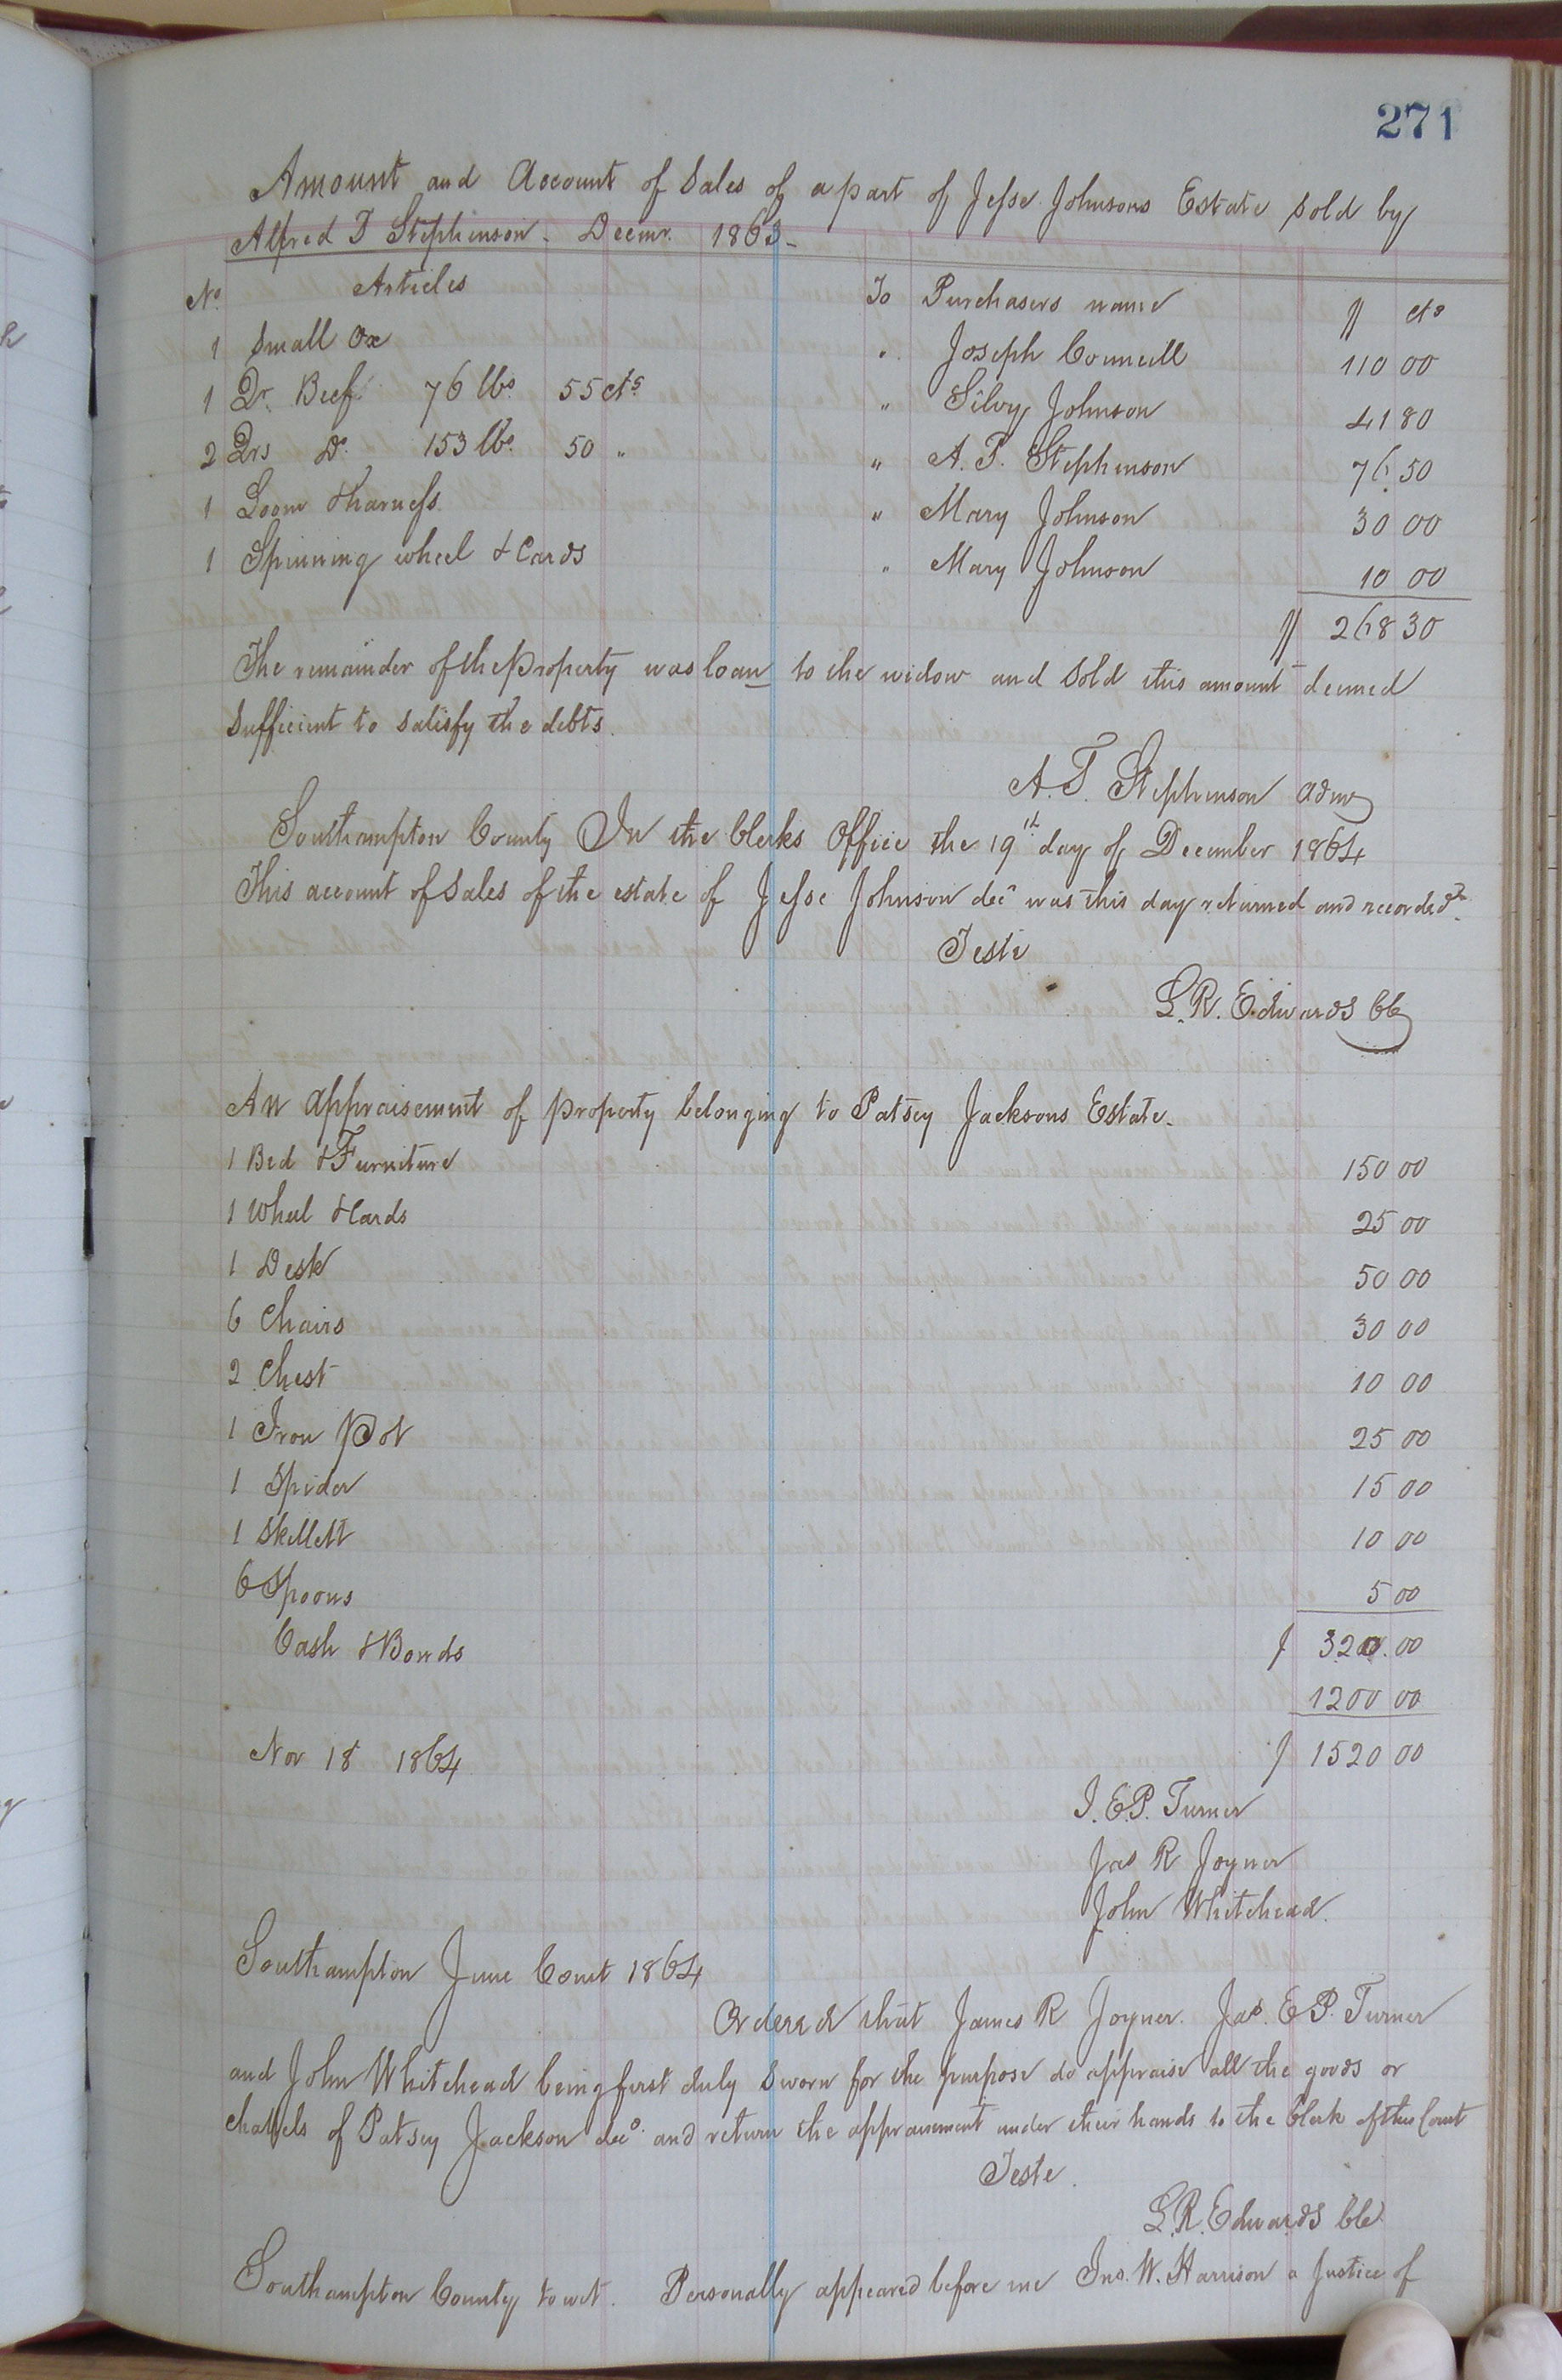 271
Amount and Account of Sales of a part of Jesse Johnsons Estate sold by
Alfred T Stephenson - Decmr. 1863-
No Articles To Purchasers name $ cts
1 Small Ox " Joseph Councill 110 00
1 Qr. Beef 76 lbs. 55 cts " Silvy Johnson 41 80
2 Qrs Do. 153 lbs. 50 " " A. T. Stephenson 76.50
1 Loom & harness " Mary Johnson 30 00
1 Spinning wheel & Cards " Mary Johnson 10 00
$ 268 30
The remainder of the Property was loan to the widow and sold this amount deemed
sufficient to satisfy the debts.
A. T. Stephenson admr
Southampton County In the Clerks Office the 19th day of December 1864
This account of sales of the estate of Jesse Johnson decd was this day returned and recorded.
Teste
L. R. Edwards CC
An appraisement of property belonging to Patsey Jacksons Estate.
1 Bed & Furniture 150 00
1 Wheel & Cards 25 00
1 Desk 50 00
6 Chairs 30 00
2 Chest 10 00
1 Iron Pot 25 00
1 Spider 15 00
1 Skillett 10 00
6 Spoons 5 00
Cash & Bonds $ 320.00
1200 00
Nov 18 1864 $ 1520 00
J. E. P. Turner
Jas R Joyner
John Whitehead.
Southampton June Court 1864
Ordered that James R Joyner. Jas. E P. Turner
and John Whitehead being first duly sworn for the purpose do appraise all the goods or
chattels of Patsey Jackson decd. and return the appraisement under their hands to the Clerk of this Court
Teste.
L. R. Edwards Clk
Southampton County to wit. Personally appeared before me Jno. W. Harrison a Justice of